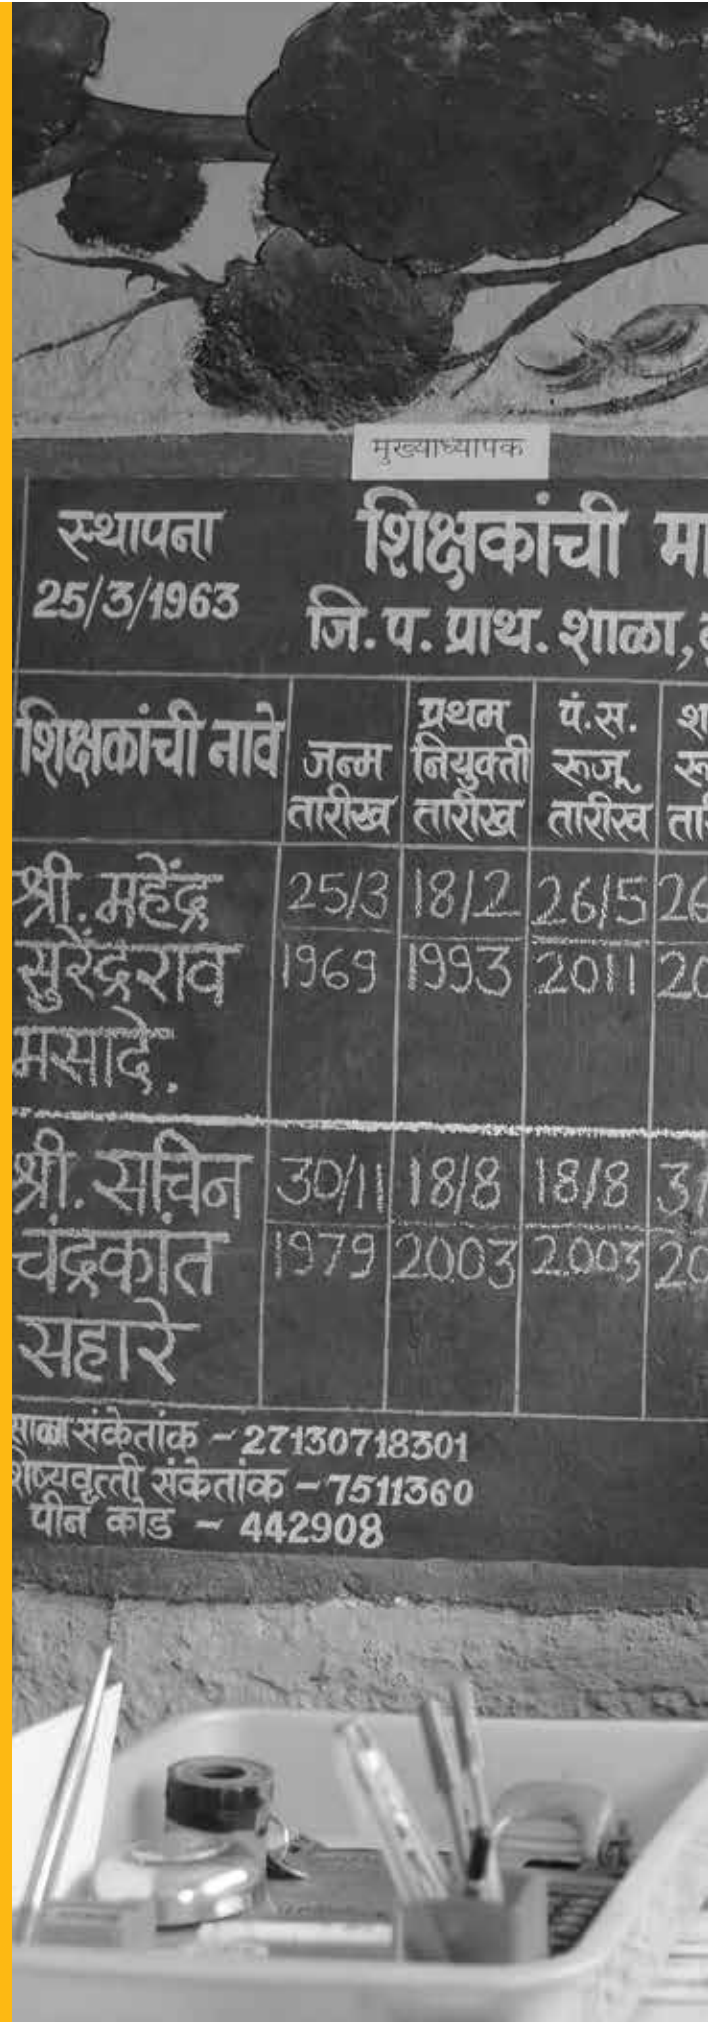 मुख्याध्यापक
स्थापना
25/3/1963
शिक्षकांची
जि.प. प्राथ. शाळा,
शिक्षकांची नावे
जन्म तारीख
प्रथम नियुक्ती तारीख
पं.स. रूजू तारीख
श्री. महेंद्र सुरेंद्रराव मसादे.
25/3 1969
18/2 1993
26/5 2011
श्री. सचिन चंद्रकांत सहारे
30/11 1979
18/8 2003
18/8 2003
संकेतांक - 27130718301
संकेतांक - 7511360
पीन कोड - 442908